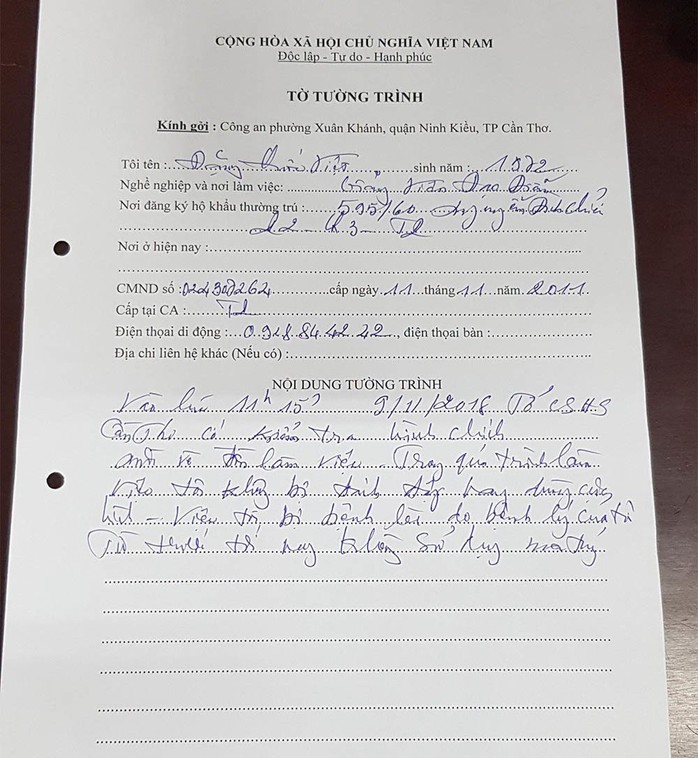 CỘNG HÒA XÃ HỘI CHỦ NGHĨA VIỆT NAM
Độc lập - Tự do - Hạnh phúc
TỜ TƯỜNG TRÌNH
Kính gởi : Công an phường Xuân Khánh, quận Ninh Kiều, TP Cần Thơ.
Tôi tên : Đặng Quốc Việt sinh năm : 1972
Nghề nghiệp và nơi làm việc:
Nơi đăng ký hộ khẩu thường trú : 595/60 Nguyễn Đình Chiểu
P2 - Q3 -
Nơi ở hiện nay :
CMND số :024300262 cấp ngày 11 tháng 11 năm 2011
Cấp tại CA :
Điện thọai di động : 0.928.84.42.42, điện thọai bàn :
Địa chỉ liên hệ khác (Nếu có) :
NỘI DUNG TƯỜNG TRÌNH
Vào lúc 11h 15' 9/11/2018 Tổ CSHS
Cần Thơ có kiểm tra hành chính
mời về đồn làm việc. Trong quá trình làm
việc tôi không bị đánh đập hay dùng cực
hình - Việc tôi bị bệnh là do bệnh lý của tôi
Từ trước tới nay không sử dụng ma túy